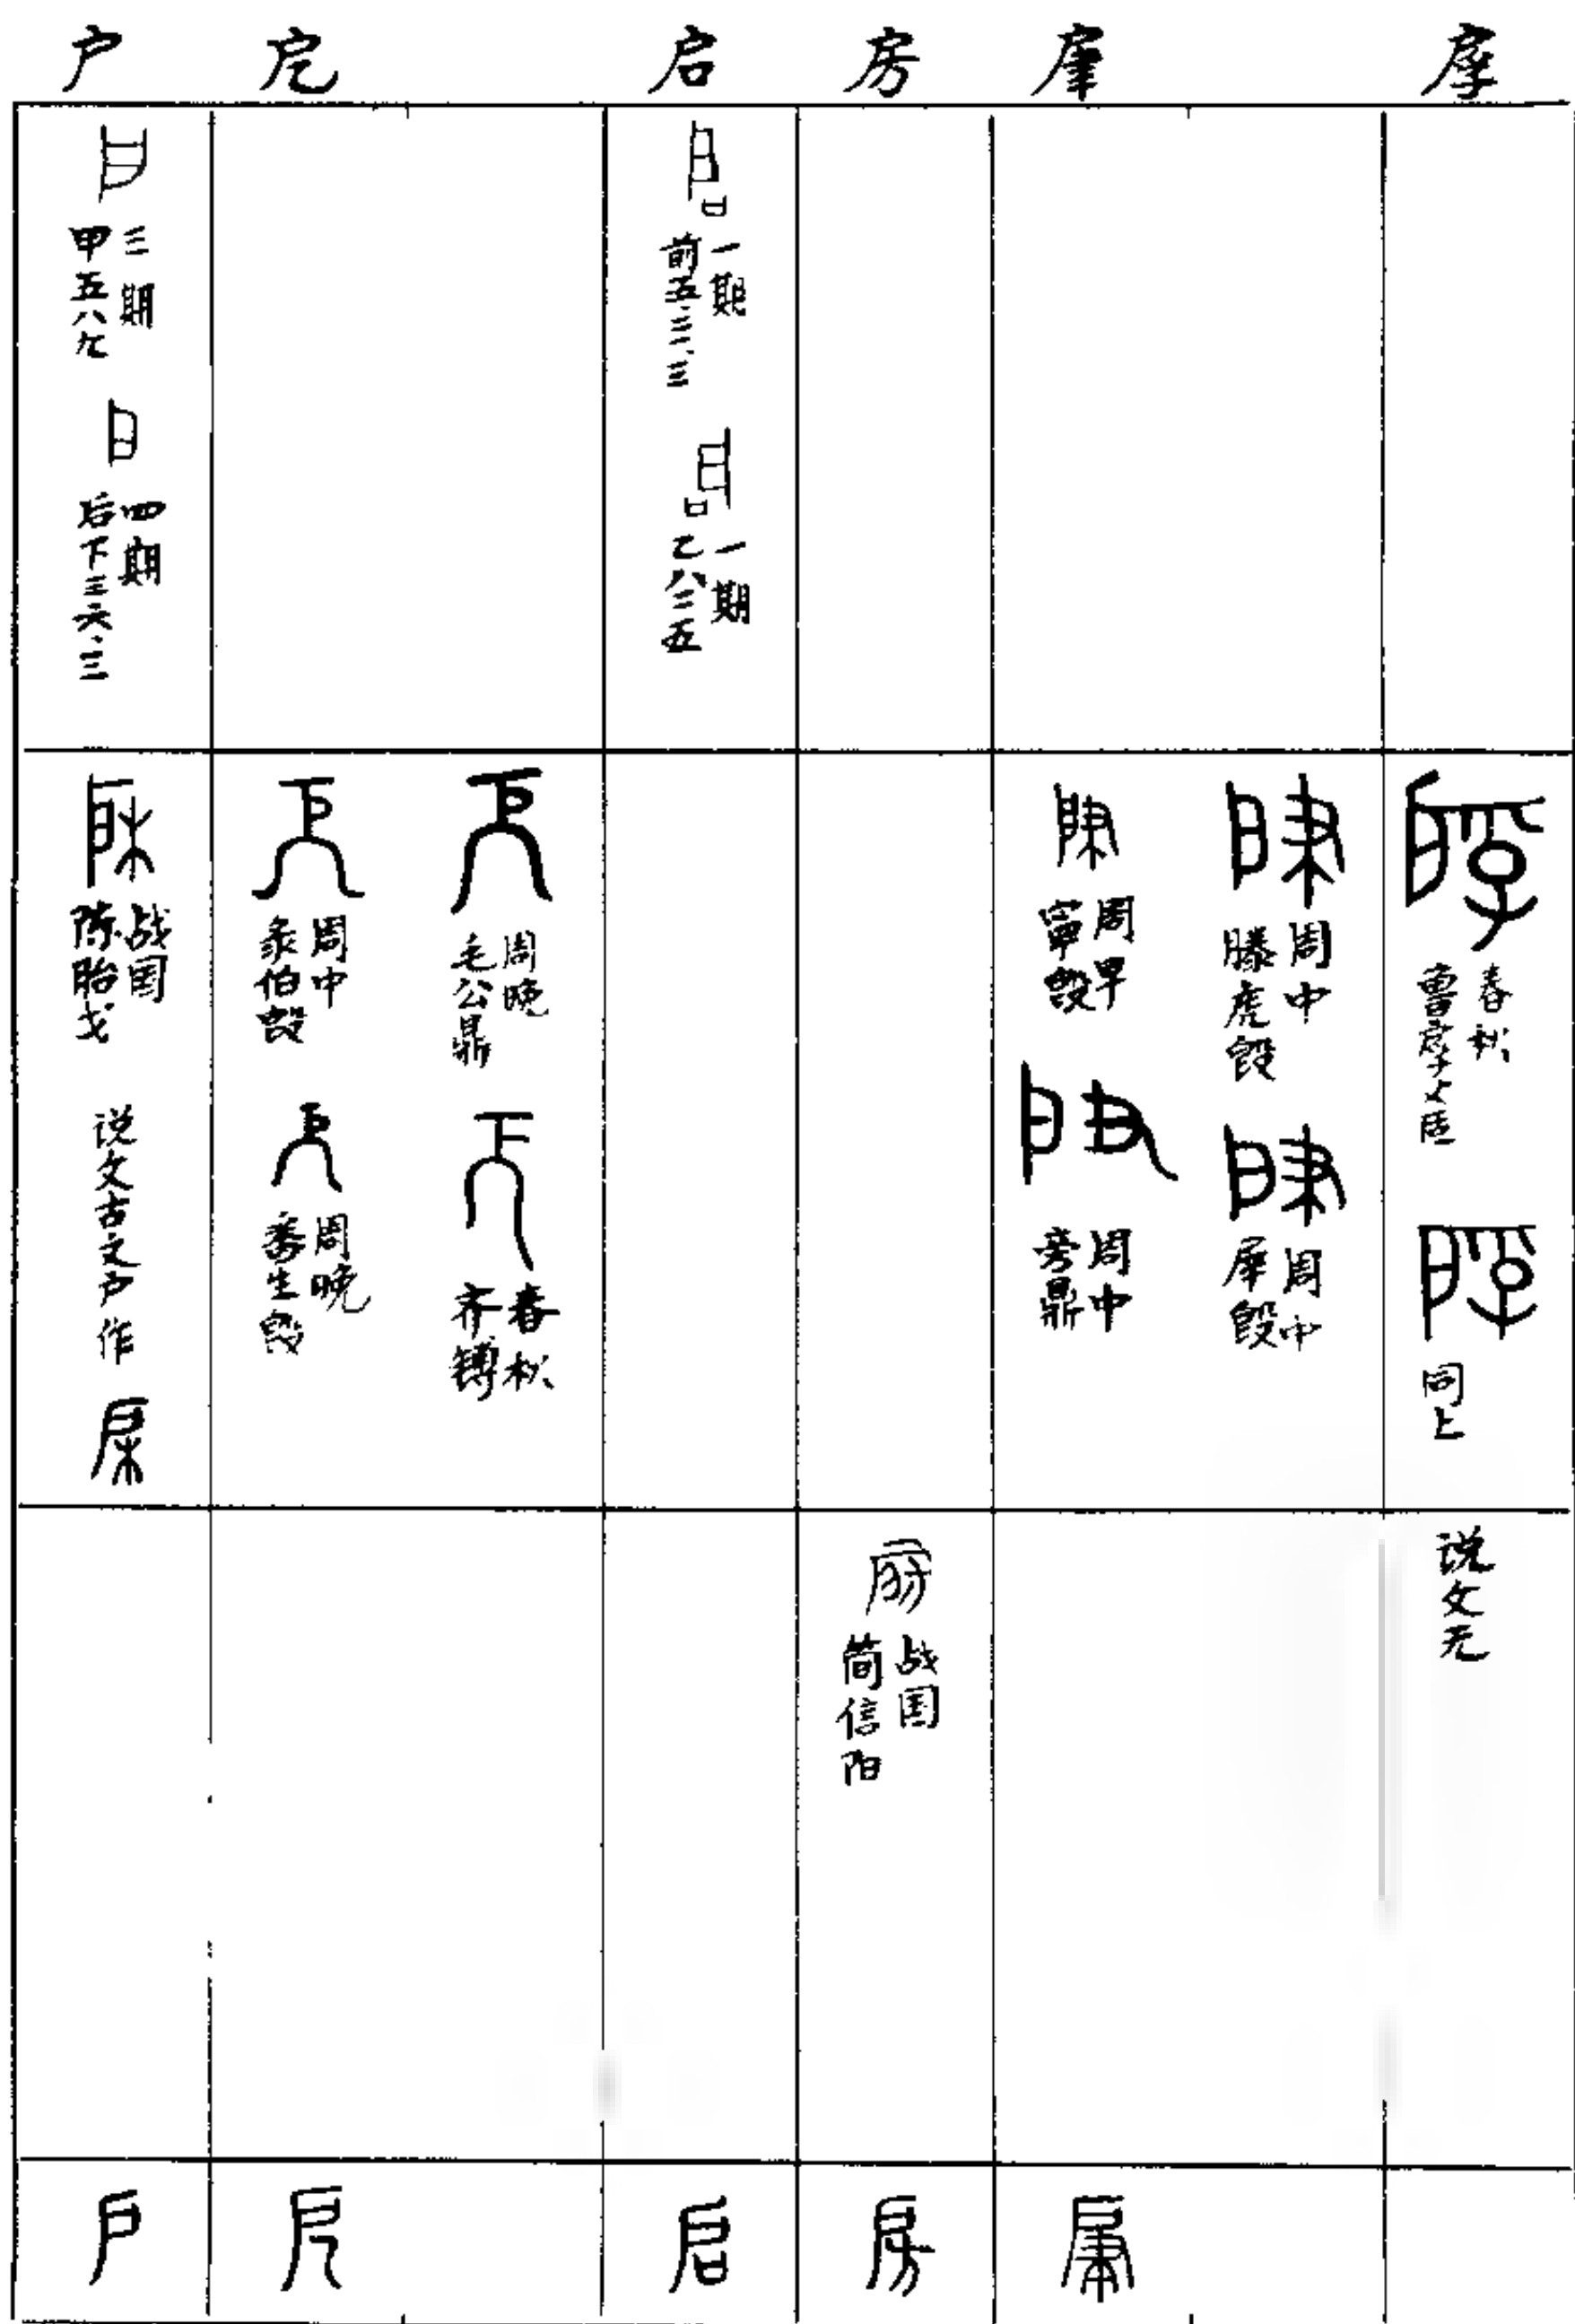 户 戹 启 房 肇 㞛
三期
甲五八九
四期
后下三六·三
一期
前五·二一·三
一期
乙八三五
战国
陈胎戈
说文古文户作
周中
彔伯𣪘
周晚
番生𣪘
周晚
毛公鼎
春秋
齐镈
周早
𡩜𣪘
周中
旁鼎
周中
滕虎𣪘
周中
肇𣪘
春秋
同上
战国
简信阳
说文无
户 戹 启 房 肇